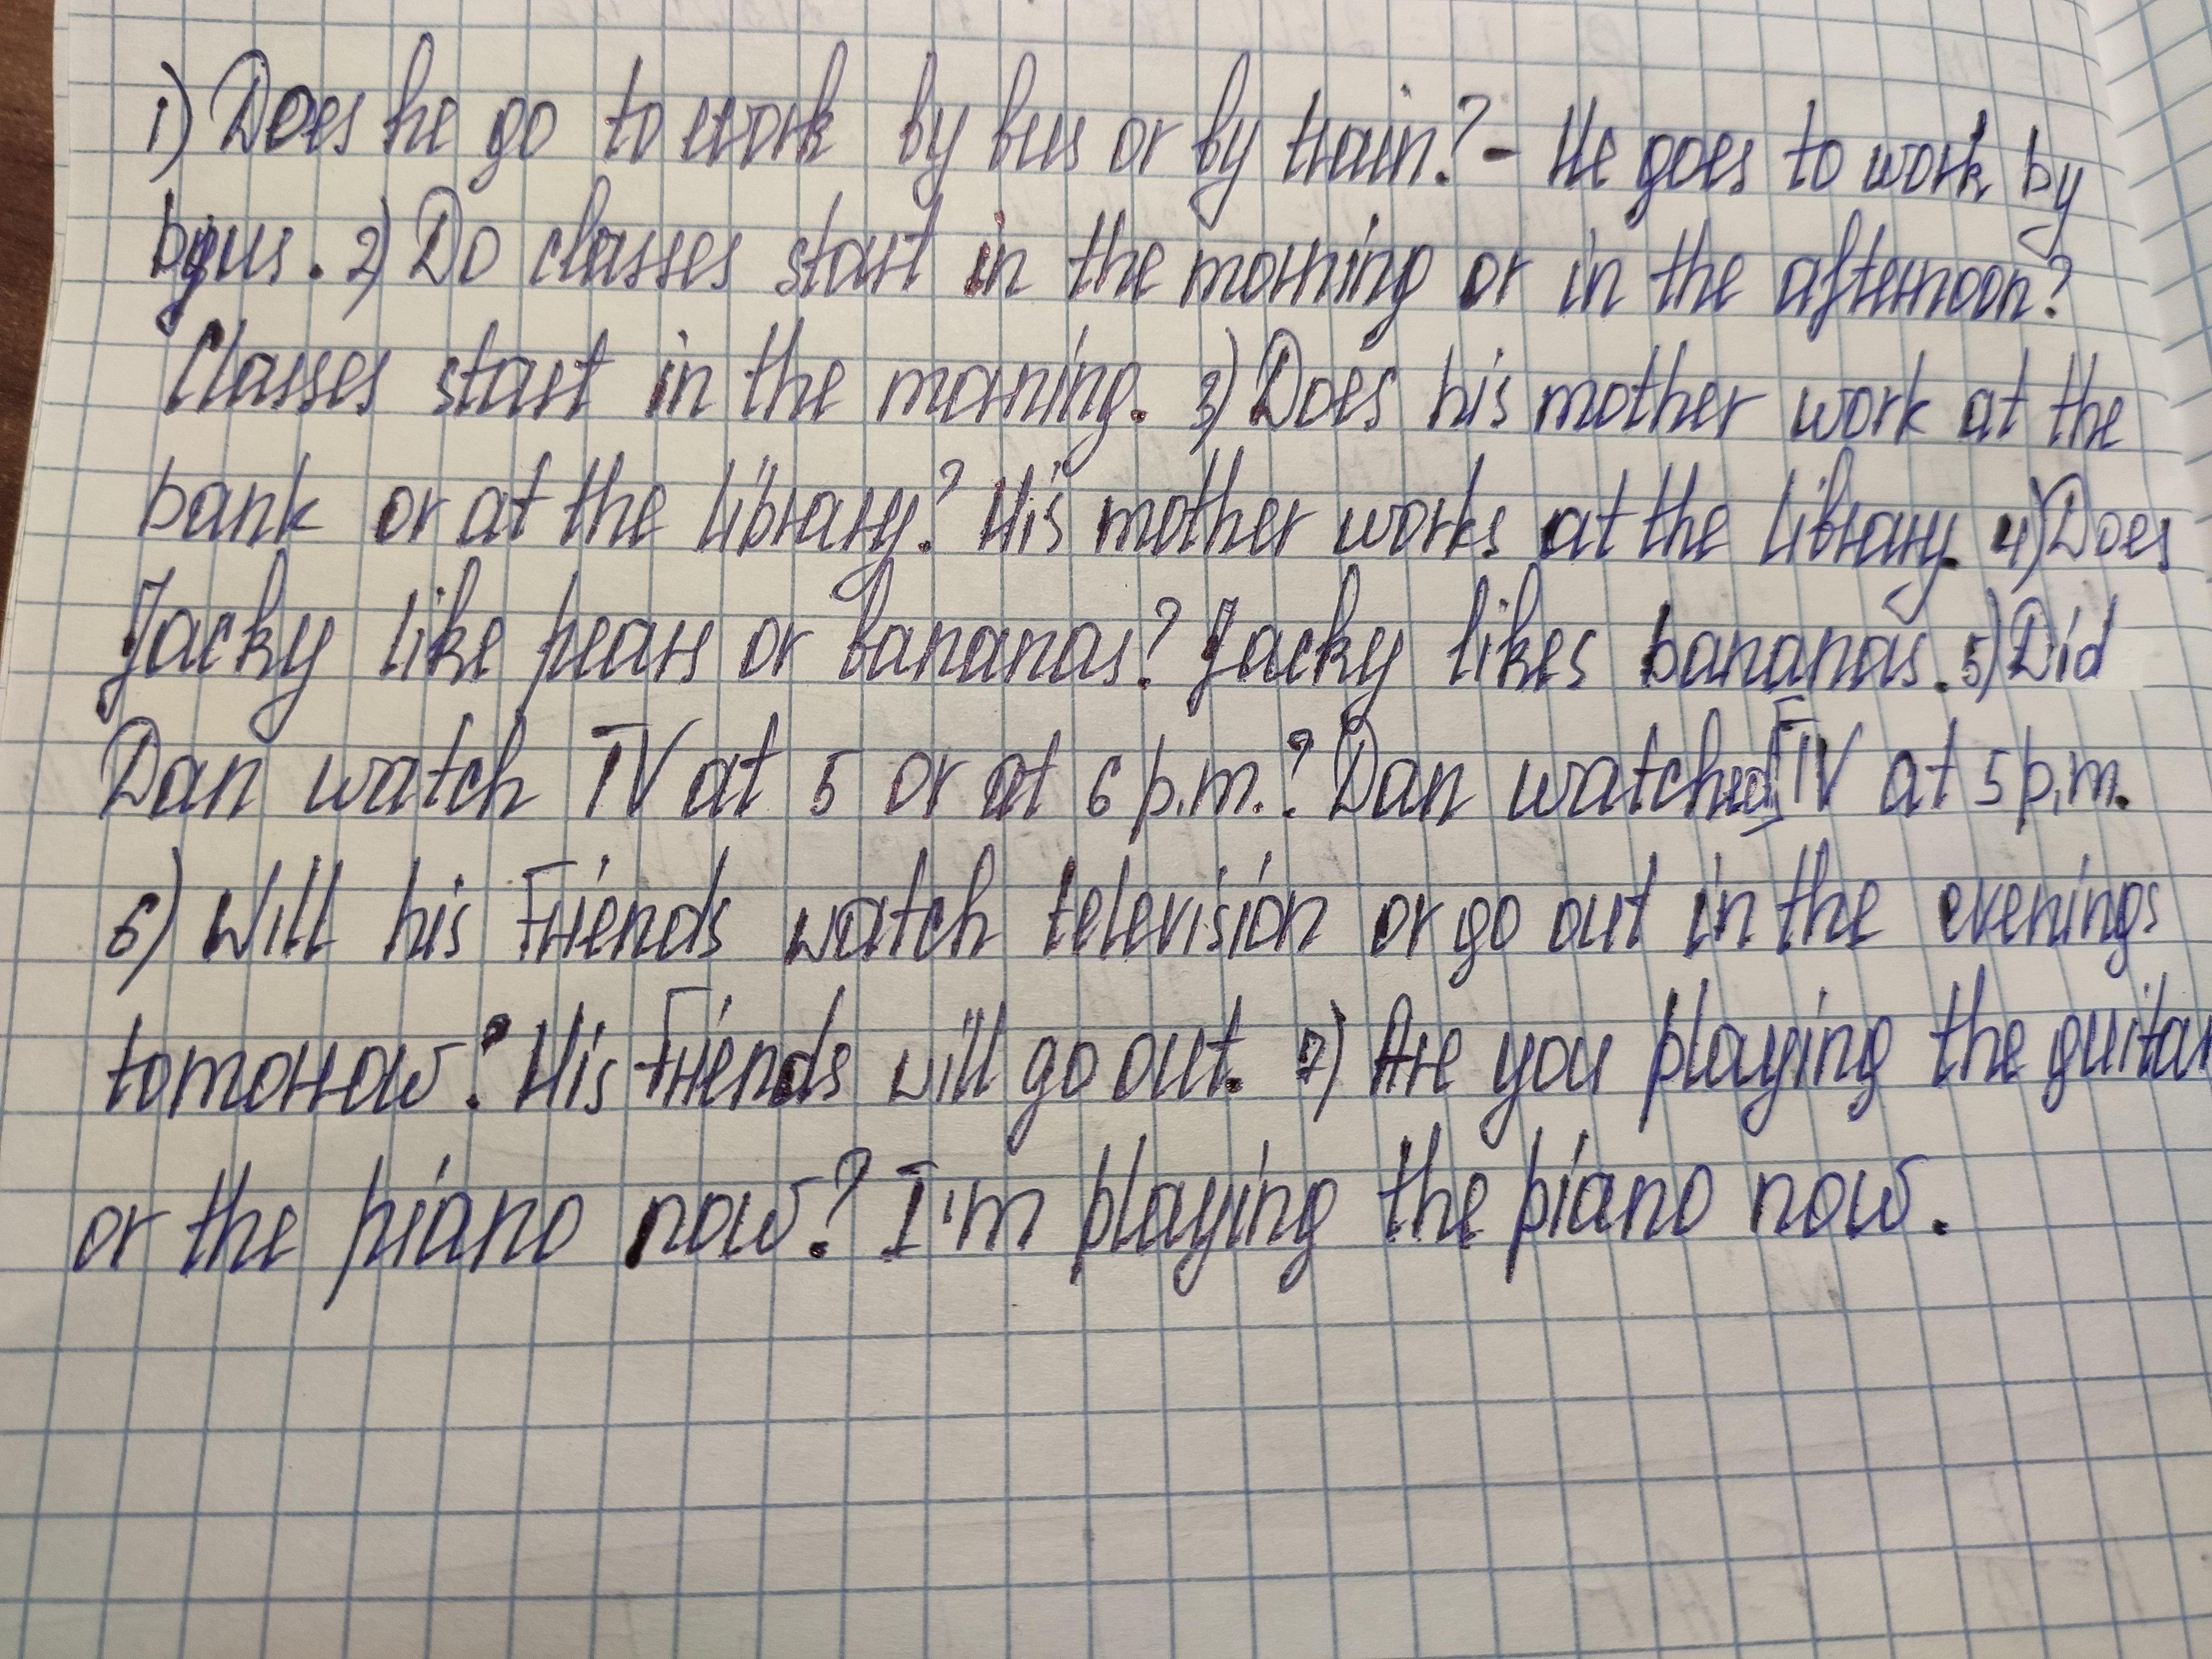 1) Does he go to work by bus or by train? - He goes to work by
bus. 2) Do classes start in the morning or in the afternoon?
Classes start in the morning. 3) Does his mother work at the
bank or at the library? His mother works at the library. 4) Does
Jacky like pears or bananas? Jacky likes bananas. 5) Did
Dan watch TV at 5 or at 6 p.m.? Dan watched TV at 5 p.m.
6) Will his Friends watch television or go out in the evenings
tomorrow? His Friends will go out. 7) Are you playing the guitar
or the piano now? I'm playing the piano now.